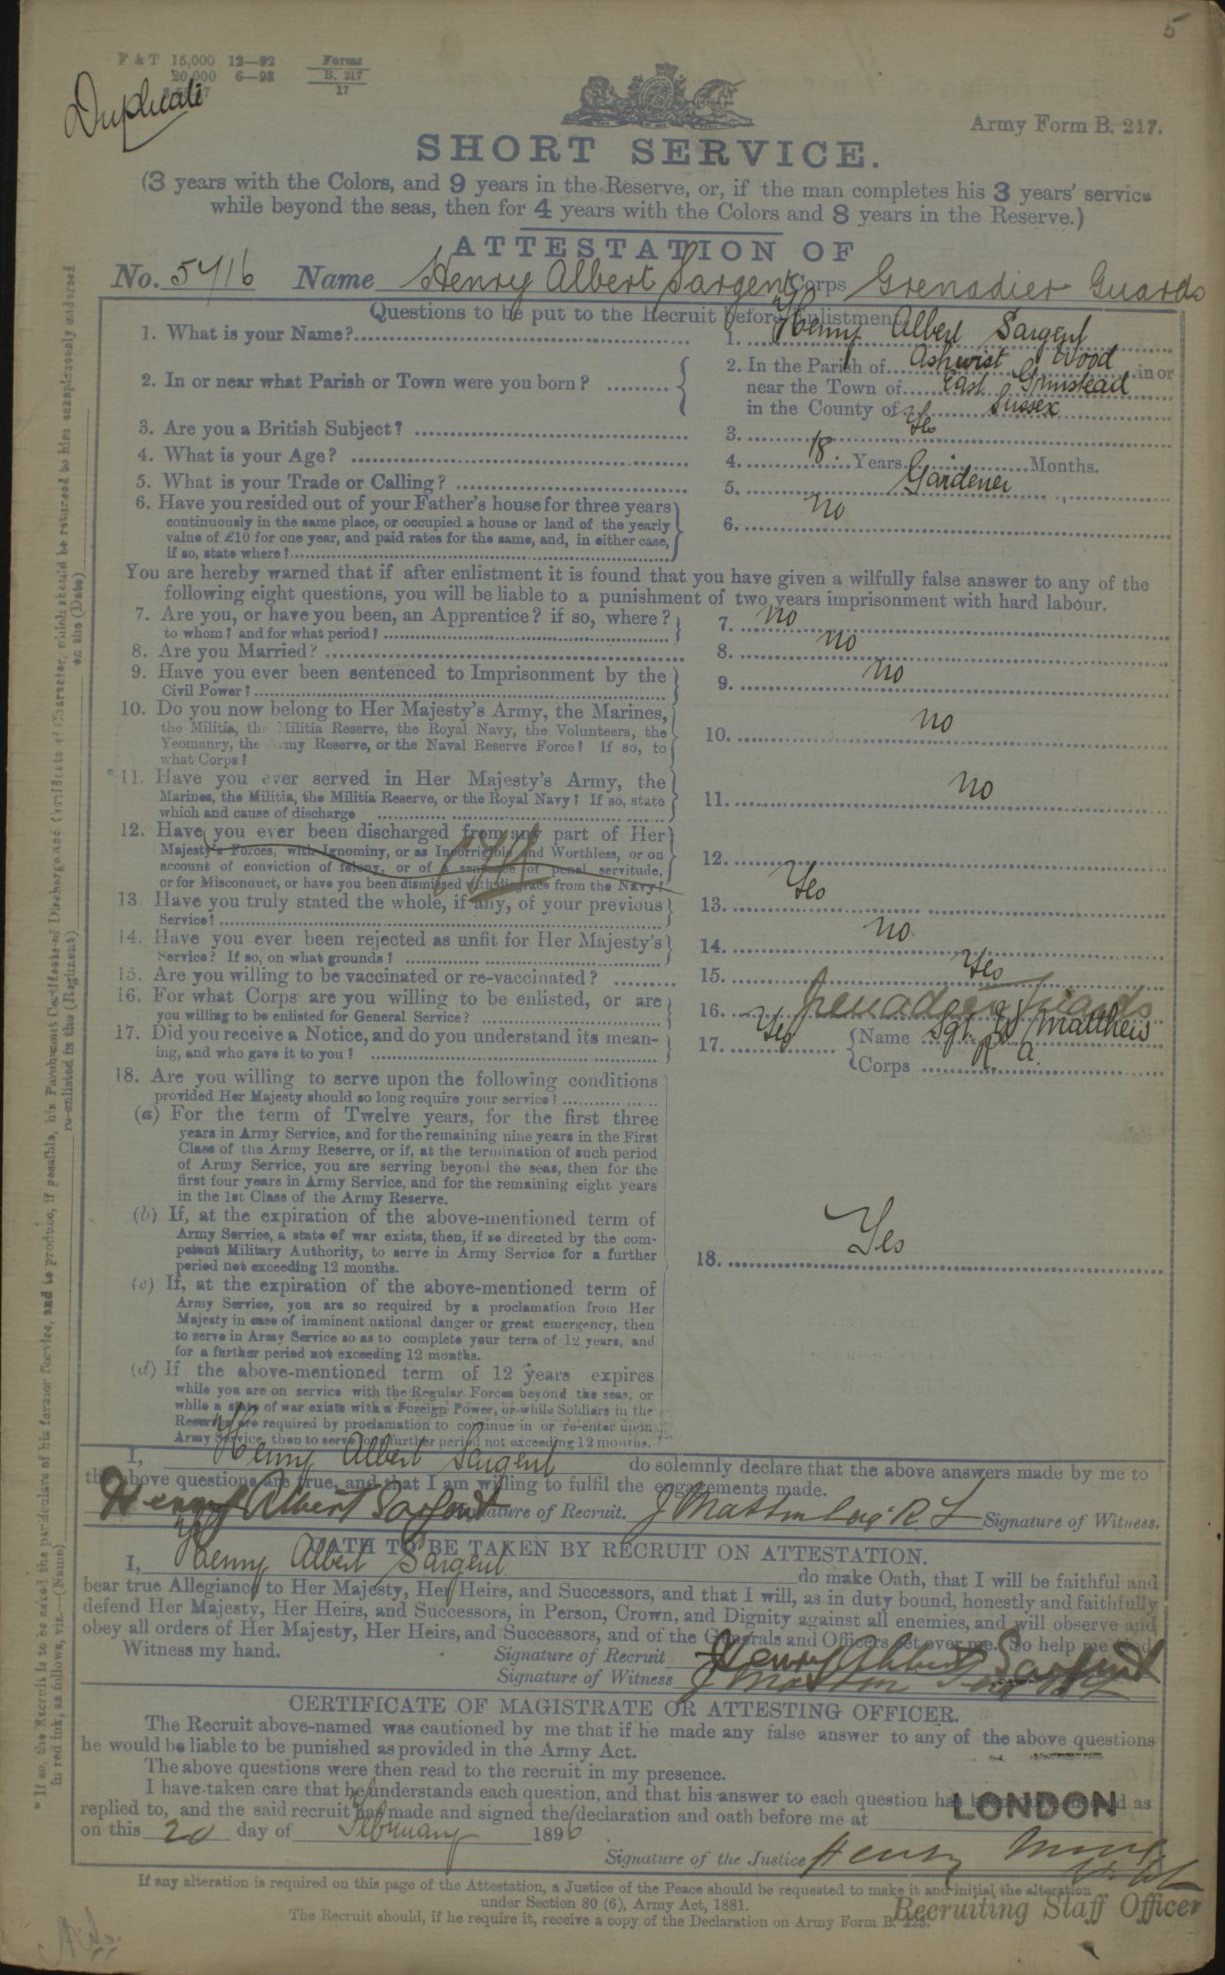 5
F & T 15,000 12—92
20,000 6—93
Forms
B. 217
17
Duplicate
Army Form B. 217.
SHORT SERVICE.
(3 years with the Colors, and 9 years in the Reserve, or, if the man completes his 3 years' service
while beyond the seas, then for 4 years with the Colors and 8 years in the Reserve.)
ATTESTATION OF
No. 5716 Name Henry Albert Sargent Corps Grenadier Guards
Questions to be put to the Recruit before Enlistment
1. What is your Name? 1. Henry Albert Sargent
2. In or near what Parish or Town were you born? 2. In the Parish of Ashurst Wood in or
near the Town of East Grinstead
in the County of Sussex
3. Are you a British Subject? 3. Yes
4. What is your Age? 4. 18 Years Months.
5. What is your Trade or Calling? 5. Gardener
6. Have you resided out of your Father's house for three years
continuously in the same place, or occupied a house or land of the yearly
value of £10 for one year, and paid rates for the same, and, in either case,
if so, state where? 6. no
You are hereby warned that if after enlistment it is found that you have given a wilfully false answer to any of the
following eight questions, you will be liable to a punishment of two years imprisonment with hard labour.
7. Are you, or have you been, an Apprentice? if so, where?
to whom? and for what period? 7. no
8. Are you Married? 8. no
9. Have you ever been sentenced to Imprisonment by the
Civil Power? 9. no
10. Do you now belong to Her Majesty's Army, the Marines,
the Militia, the Militia Reserve, the Royal Navy, the Volunteers, the
Yeomanry, the my Reserve, or the Naval Reserve Force? If so, to
what Corps? 10. no
*11. Have you ever served in Her Majesty's Army, the
Marines, the Militia, the Militia Reserve, or the Royal Navy? If so, state
which and cause of discharge 11. no
12. Have you ever been discharged from any part of Her
Majesty's Forces, with Ignominy, or as Incorrigible and Worthless, or on
account of conviction of felony, or of a sentence of penal servitude,
or for Misconduct, or have you been dismissed with disgrace from the Navy? 12.
13. Have you truly stated the whole, if any, of your previous
Service? 13. Yes
14. Have you ever been rejected as unfit for Her Majesty's
Service? If so, on what grounds? 14. no
15. Are you willing to be vaccinated or re-vaccinated? 15. Yes
16. For what Corps are you willing to be enlisted, or are
you willing to be enlisted for General Service? 16. Grenadier Guards
17. Did you receive a Notice, and do you understand its mean-
ing, and who gave it to you? 17. Yes Name Sgt. W Matthews
Corps R. A.
18. Are you willing to serve upon the following conditions
provided Her Majesty should so long require your service?
(a) For the term of Twelve years, for the first three
years in Army Service, and for the remaining nine years in the First
Class of the Army Reserve, or if, at the termination of such period
of Army Service, you are serving beyond the seas, then for the
first four years in Army Service, and for the remaining eight years
in the 1st Class of the Army Reserve.
(b) If, at the expiration of the above-mentioned term of
Army Service, a state of war exists, then, if so directed by the com-
petent Military Authority, to serve in Army Service for a further
period not exceeding 12 months. 18. Yes
(c) If, at the expiration of the above-mentioned term of
Army Service, you are so required by a proclamation from Her
Majesty in case of imminent national danger or great emergency, then
to serve in Army Service so as to complete your term of 12 years, and
for a further period not exceeding 12 months.
(d) If the above-mentioned term of 12 years expires
while you are on service with the Regular Forces beyond the seas, or
while a state of war exists with a Foreign Power, or while Soldiers in the
Reserve are required by proclamation to continue in or re-enter upon
Army Service, then to serve for a further period not exceeding 12 months.
I, Henry Albert Sargent do solemnly declare that the above answers made by me to
the above questions are true, and that I am willing to fulfil the engagements made.
Henry Albert Sargent Signature of Recruit. Signature of Witness.
OATH TO BE TAKEN BY RECRUIT ON ATTESTATION.
I, Henry Albert Sargent do make Oath, that I will be faithful and
bear true Allegiance to Her Majesty, Her Heirs, and Successors, and that I will, as in duty bound, honestly and faithfully
defend Her Majesty, Her Heirs, and Successors, in Person, Crown, and Dignity against all enemies, and will observe and
obey all orders of Her Majesty, Her Heirs, and Successors, and of the Generals and Officers set over me. So help me God.
Witness my hand. Signature of Recruit Henry Albert Sargent
Signature of Witness
CERTIFICATE OF MAGISTRATE OR ATTESTING OFFICER.
The Recruit above-named was cautioned by me that if he made any false answer to any of the above questions
he would be liable to be punished as provided in the Army Act.
The above questions were then read to the recruit in my presence.
I have taken care that he understands each question, and that his answer to each question has been duly entered as
replied to, and the said recruit has made and signed the declaration and oath before me at LONDON
on this 20 day of February 1896
Signature of the Justice Henry
If any alteration is required on this page of the Attestation, a Justice of the Peace should be requested to make it and initial the alteration
under Section 80 (6), Army Act, 1881.
Recruiting Staff Officer
The Recruit should, if he require it, receive a copy of the Declaration on Army Form B.
* If so, the Recruit is to be asked the particulars of his former Service, and to produce, if possible, his Parchment Certificate of Discharge and Certificate of Character, which should be returned to him conspicuously endorsed
in red ink, as follows, viz.—(Name) re-enlisted in the (Regiment) on the (Date)